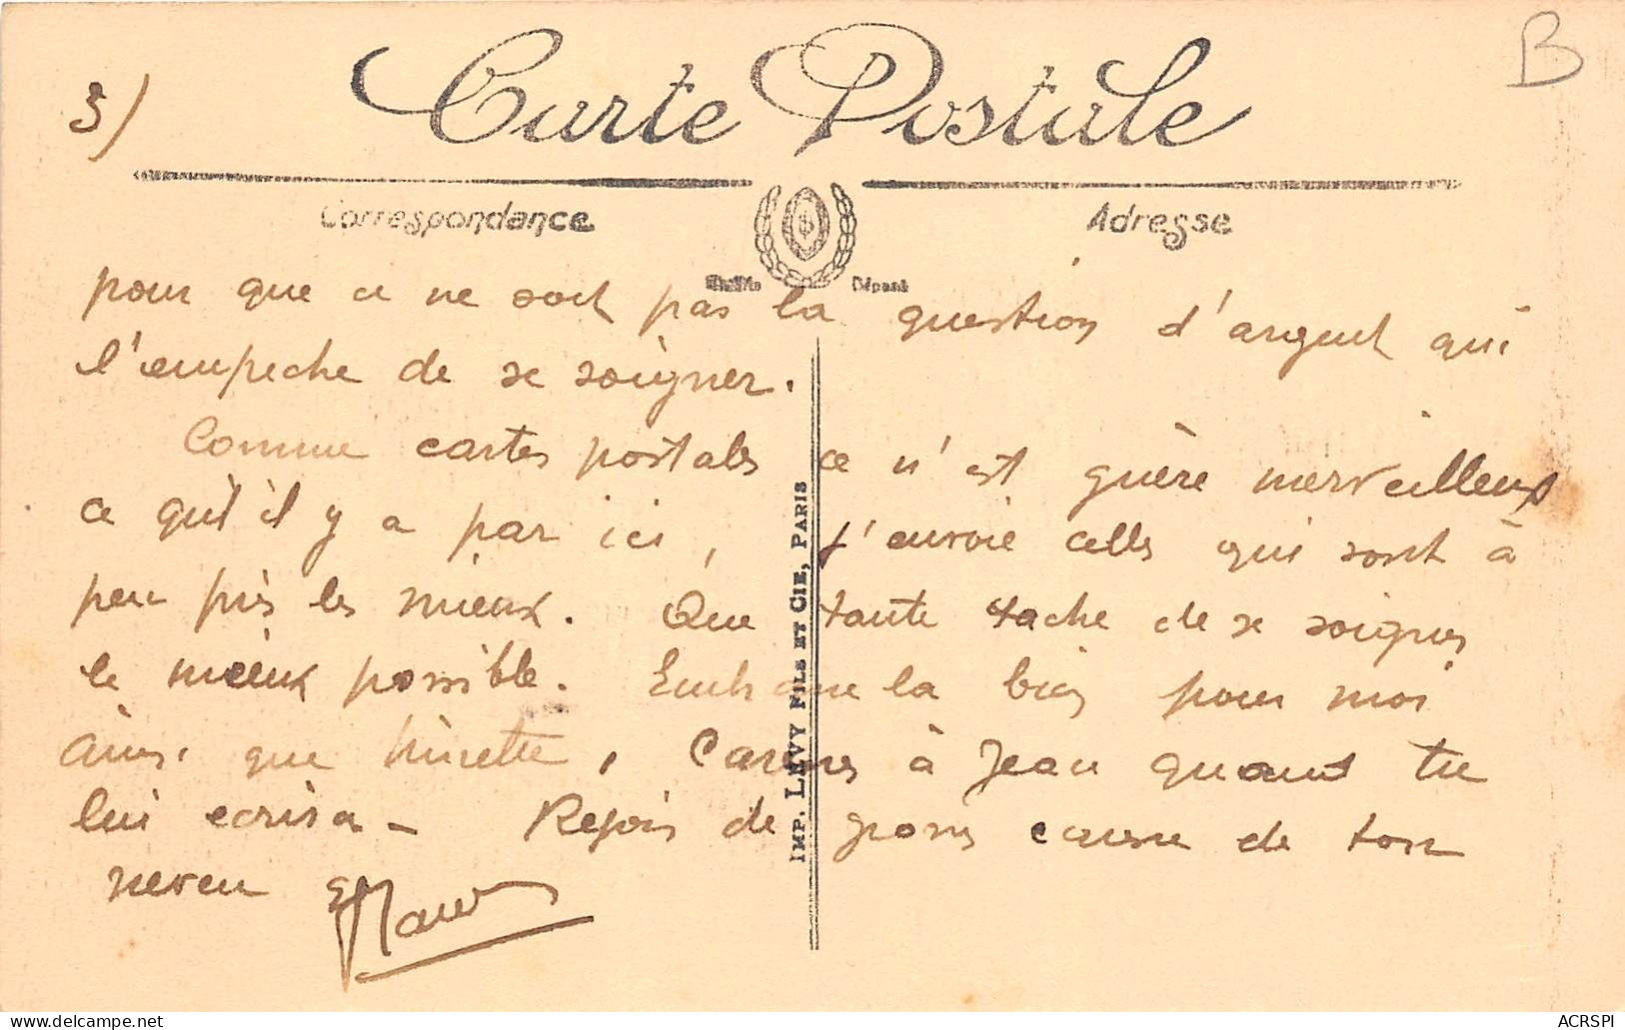 B
3)
Carte Postale
Correspondance
Adresse
Déposé
pour que ce ne soit pas la question d'argent qui
l'empeche de se soigner.
Comme cartes postales ce n'est guère merveilleux
ce qu'il y a par ici, j'envoie celles qui sont à
peu près les mieux. Que tante tache de se soigner
le mieux possible. Embrasse la bien pour moi
ainsi que Ninette, Caresses à Jean quand tu
lui ecrira - Reçois de gross caresse de ton
neveu
IMP. LÉVY FILS ET CIE, PARIS
ACRSPI